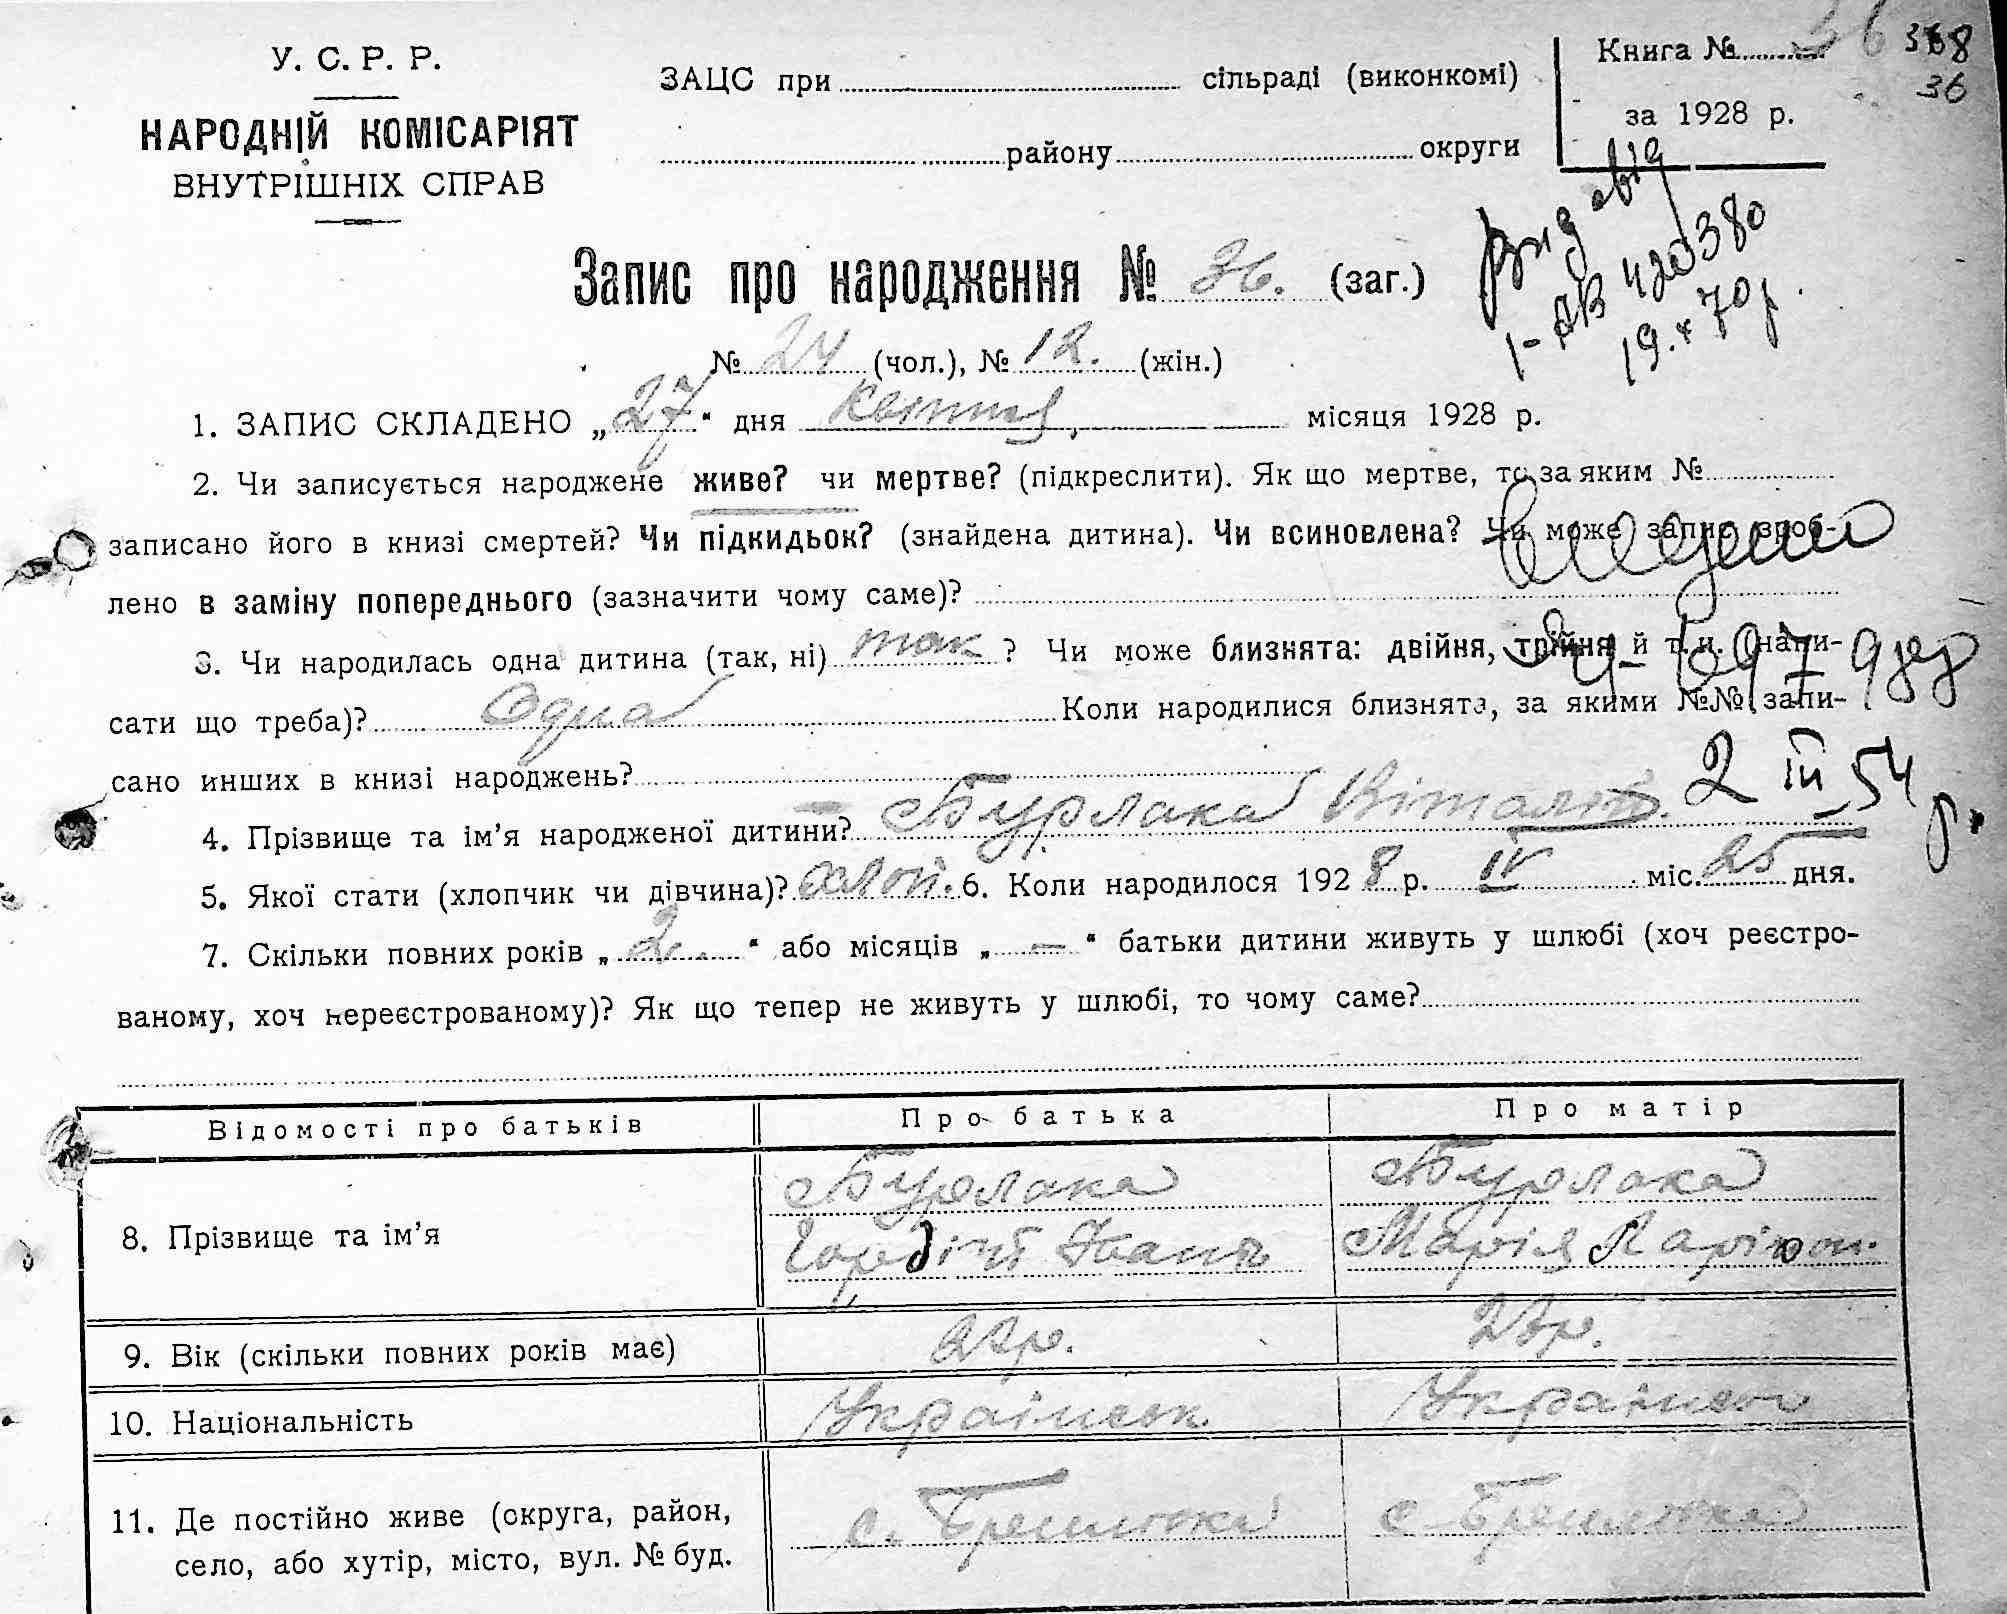 У. С. Р. Р.
НАРОДНІЙ КОМІСАРІЯТ
ВНУТРІШНІХ СПРАВ
ЗАЦС при сільраді (виконкомі)
району округи
Книга № 36 368
36
за 1928 р.
Запис про народження № 36. (заг.)
№ 24 (чол.), № 12. (жін.)
Вид свід
1-АВ 420380
19.X 70р.
1. ЗАПИС СКЛАДЕНО „27“ дня Квітня місяця 1928 р.
2. Чи записується народжене живе? чи мертве? (підкреслити). Як що мертве, то за яким №
записано його в книзі смертей? Чи підкидьок? (знайдена дитина). Чи всиновлена? Чи може запис зроб-
лено в заміну попереднього (зазначити чому саме)?
3. Чи народилась одна дитина (так, ні) так ? Чи може близнята: двійня, трійня й т. и. (напи-
сати що треба)? Одна Коли народилися близнята, за якими №№ запи-
сано инших в книзі народжень?
2 III 54 р.
4. Прізвище та ім’я народженої дитини? Бурлака Віталій.
5. Якої стати (хлопчик чи дівчина)? хлоп. 6. Коли народилося 1928 р. IV міс. 25 дня.
7. Скільки повних років „2.“ або місяців „—“ батьки дитини живуть у шлюбі (хоч реєстро-
ваному, хоч нереєстрованому)? Як що тепер не живуть у шлюбі, то чому саме?
Відомості про батьків Про батька Про матір
8. Прізвище та ім’я Бурлака Бурлака
Гордій Іван Марія Ларіон.
9. Вік (скільки повних років має) 22р.
10. Національність Українськ
11. Де постійно живе (округа, район,
село, або хутір, місто, вул. № буд.